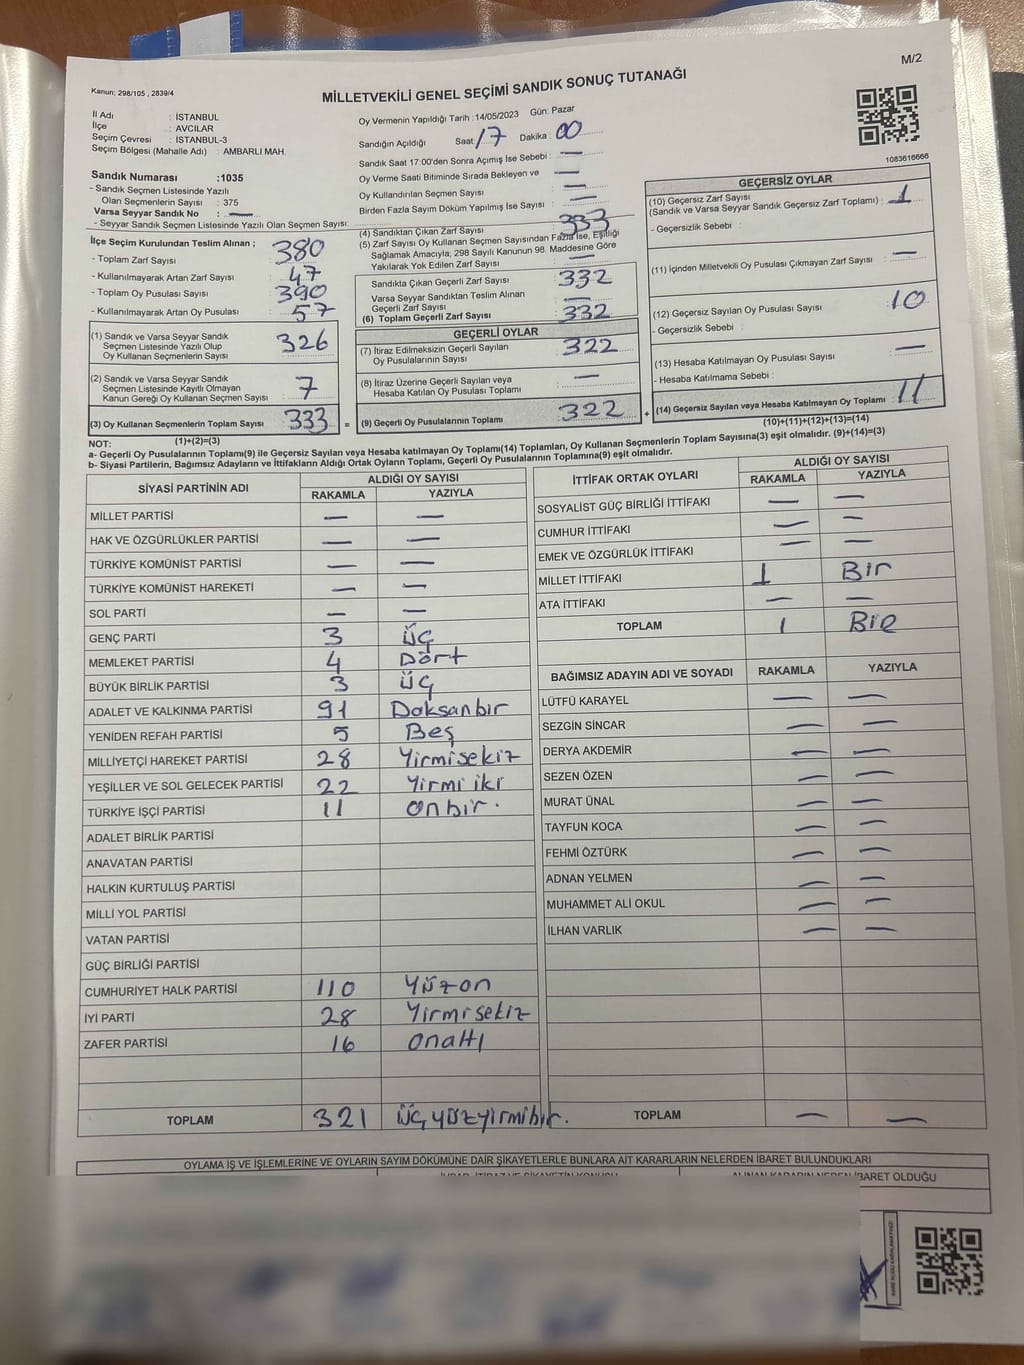 M/2
Kanun; 298/105 , 2839/4
MİLLETVEKİLİ GENEL SEÇİMİ SANDIK SONUÇ TUTANAĞI
İl Adı : İSTANBUL
İlçe : AVCILAR
Seçim Çevresi : İSTANBUL-3
Seçim Bölgesi (Mahalle Adı) : AMBARLI MAH.
Sandık Numarası :1035
- Sandık Seçmen Listesinde Yazılı
Olan Seçmenlerin Sayısı : 375
Varsa Seyyar Sandık No : —
- Seyyar Sandık Seçmen Listesinde Yazılı Olan Seçmen Sayısı:
Oy Vermenin Yapıldığı Tarih : 14/05/2023 Gün: Pazar
Sandığın Açıldığı Saat: 17 Dakika : 00
Sandık Saat 17:00'den Sonra Açımış İse Sebebi : —
Oy Verme Saati Bitiminde Sırada Bekleyen ve : —
Oy Kullandırılan Seçmen Sayısı : —
Birden Fazla Sayım Döküm Yapılmış İse Sayısı : —
1083616666
İlçe Seçim Kurulundan Teslim Alınan ;
- Toplam Zarf Sayısı : 380
- Kullanılmayarak Artan Zarf Sayısı : 47
- Toplam Oy Pusulası Sayısı : 390
- Kullanılmayarak Artan Oy Pusulası : 57
(1) Sandık ve Varsa Seyyar Sandık
Seçmen Listesinde Yazılı Olup
Oy Kullanan Seçmenlerin Sayısı : 326
(2) Sandık ve Varsa Seyyar Sandık
Seçmen Listesinde Kayıtlı Olmayan
Kanun Gereği Oy Kullanan Seçmen Sayısı : 7
(3) Oy Kullanan Seçmenlerin Toplam Sayısı : 333
(1)+(2)=(3)
(4) Sandıktan Çıkan Zarf Sayısı : 333
(5) Zarf Sayısı Oy Kullanan Seçmen Sayısından Fazla İse, Eşitliği
Sağlamak Amacıyla, 298 Sayılı Kanunun 98. Maddesine Göre
Yakılarak Yok Edilen Zarf Sayısı : —
Sandıkta Çıkan Geçerli Zarf Sayısı : 332
Varsa Seyyar Sandıktan Teslim Alınan
Geçerli Zarf Sayısı : —
(6) Toplam Geçerli Zarf Sayısı : 332
GEÇERLİ OYLAR
(7) İtiraz Edilmeksizin Geçerli Sayılan
Oy Pusulalarının Sayısı : 322
(8) İtiraz Üzerine Geçerli Sayılan veya
Hesaba Katılan Oy Pusulası Toplamı : —
= (9) Geçerli Oy Pusulalarının Toplamı : 322 +
GEÇERSİZ OYLAR
(10) Geçersiz Zarf Sayısı
(Sandık ve Varsa Seyyar Sandık Geçersiz Zarf Toplamı) : 1
- Geçersizlik Sebebi :
(11) İçinden Milletvekili Oy Pusulası Çıkmayan Zarf Sayısı : —
(12) Geçersiz Sayılan Oy Pusulası Sayısı : 10
- Geçersizlik Sebebi :
(13) Hesaba Katılmayan Oy Pusulası Sayısı : —
- Hesaba Katılmama Sebebi :
(14) Geçersiz Sayılan veya Hesaba Katılmayan Oy Toplamı : 11
(10)+(11)+(12)+(13)=(14)
NOT:
a- Geçerli Oy Pusulalarının Toplamı(9) ile Geçersiz Sayılan veya Hesaba katılmayan Oy Toplamı(14) Toplamları, Oy Kullanan Seçmenlerin Toplam Sayısına(3) eşit olmalıdır. (9)+(14)=(3)
b- Siyasi Partilerin, Bağımsız Adayların ve İttifakların Aldığı Ortak Oyların Toplamı, Geçerli Oy Pusulalarının Toplamına(9) eşit olmalıdır.
SİYASİ PARTİNİN ADI ALDIĞI OY SAYISI
RAKAMLA YAZIYLA
MİLLET PARTİSİ — —
HAK VE ÖZGÜRLÜKLER PARTİSİ — —
TÜRKİYE KOMÜNİST PARTİSİ — —
TÜRKİYE KOMÜNİST HAREKETİ — —
SOL PARTİ — —
GENÇ PARTİ 3 üç
MEMLEKET PARTİSİ 4 Dört
BÜYÜK BİRLİK PARTİSİ 3 üç
ADALET VE KALKINMA PARTİSİ 91 Doksanbir
YENİDEN REFAH PARTİSİ 5 Beş
MİLLİYETÇİ HAREKET PARTİSİ 28 Yirmisekiz
YEŞİLLER VE SOL GELECEK PARTİSİ 22 Yirmi iki
TÜRKİYE İŞÇİ PARTİSİ 11 onbir.
ADALET BİRLİK PARTİSİ
ANAVATAN PARTİSİ
HALKIN KURTULUŞ PARTİSİ
MİLLİ YOL PARTİSİ
VATAN PARTİSİ
GÜÇ BİRLİĞİ PARTİSİ
CUMHURİYET HALK PARTİSİ 110 Yüzon
İYİ PARTİ 28 Yirmisekiz
ZAFER PARTİSİ 16 onaltı
TOPLAM 321 üçyüzyirmibir.
İTTİFAK ORTAK OYLARI ALDIĞI OY SAYISI
RAKAMLA YAZIYLA
SOSYALİST GÜÇ BİRLİĞİ İTTİFAKI — —
CUMHUR İTTİFAKI — —
EMEK VE ÖZGÜRLÜK İTTİFAKI — —
MİLLET İTTİFAKI 1 Bir
ATA İTTİFAKI — —
TOPLAM 1 Bir
BAĞIMSIZ ADAYIN ADI VE SOYADI RAKAMLA YAZIYLA
LÜTFÜ KARAYEL — —
SEZGİN SİNCAR — —
DERYA AKDEMİR — —
SEZEN ÖZEN — —
MURAT ÜNAL — —
TAYFUN KOCA — —
FEHMİ ÖZTÜRK — —
ADNAN YELMEN — —
MUHAMMET ALİ OKUL — —
İLHAN VARLIK — —
TOPLAM — —
OYLAMA İŞ VE İŞLEMLERİNE VE OYLARIN SAYIM DÖKÜMÜNE DAİR ŞİKAYETLERLE BUNLARA AİT KARARLARIN NELERDEN İBARET BULUNDUKLARI
İBARET OLDUĞU